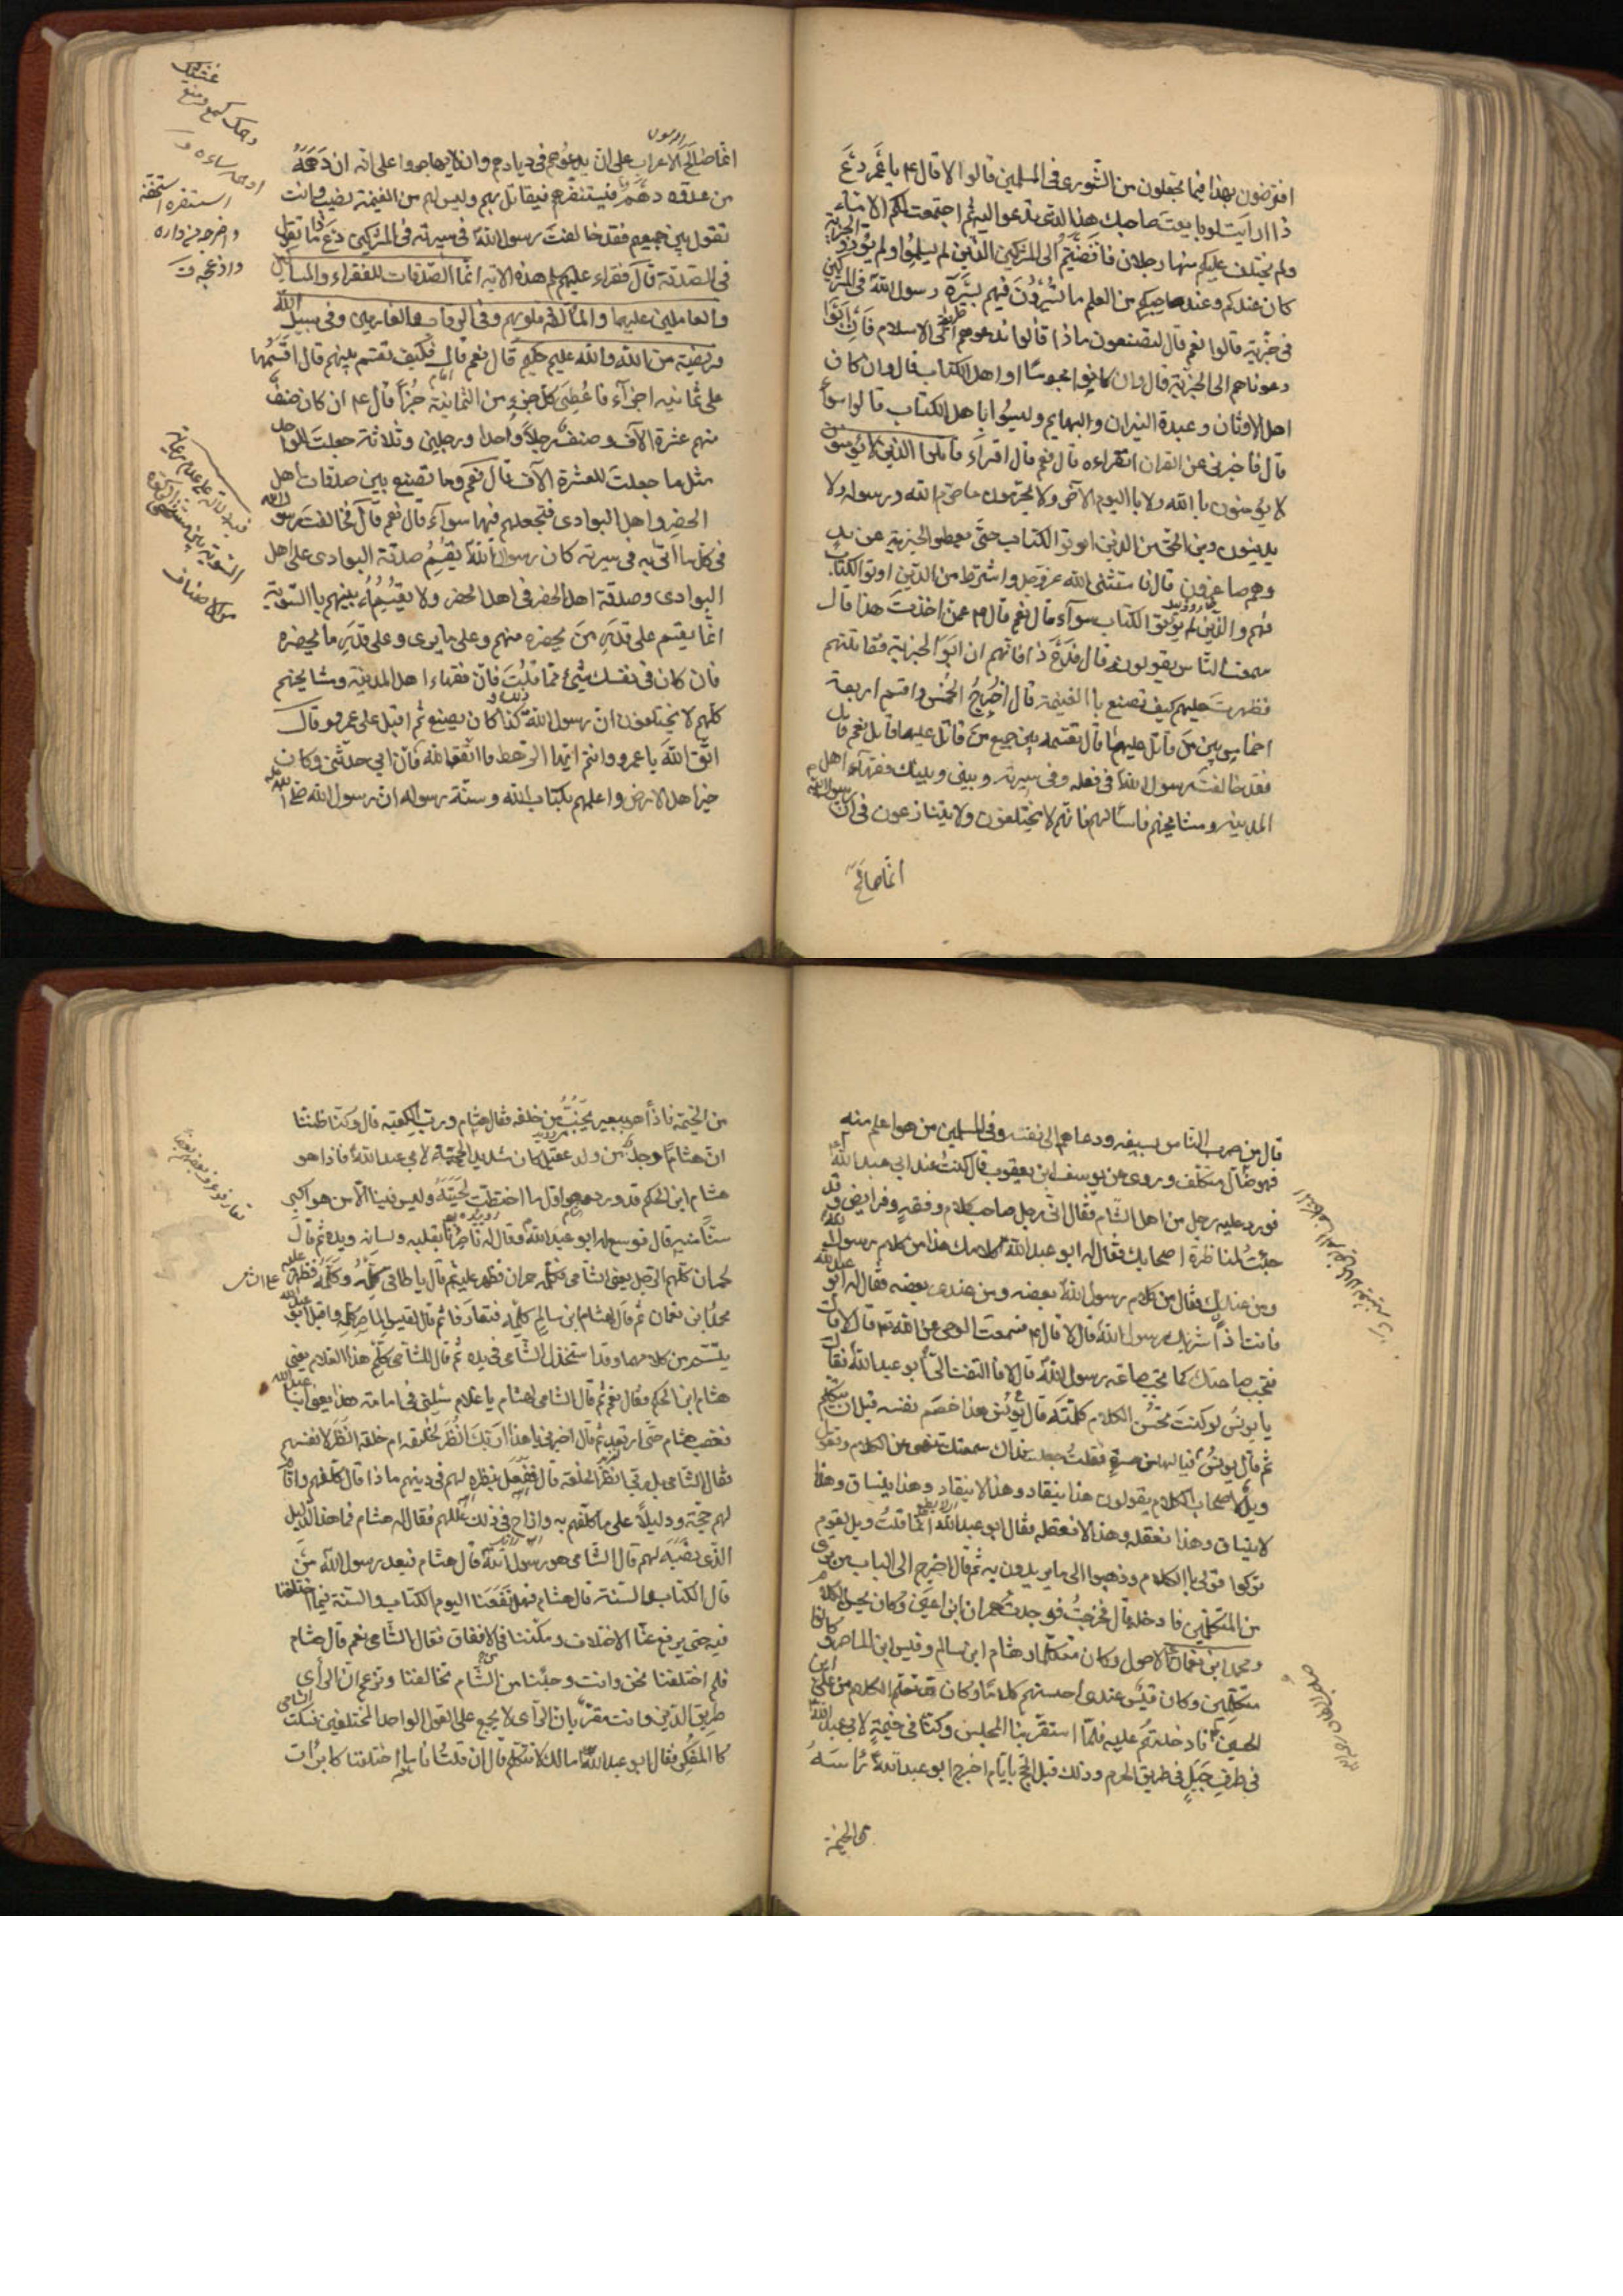 افترضون بهذا فيما تجعلون من الشورى فى المسلمين قالوا لا قال ع يا عمرو دَعْ
ذا ارايت لو بايعت صاحبك هذا الذى تدعوا اليه ثم اجتمعت لكم الامة
ولم يختلف عليكم منها رجلان فافضيتم الى المشركين الذين لم يسلموا ولم يؤدوا الجزية
كان عندكم وعند صاحبكم من العلم ما تسيرون فيهم بسيرة رسول الله فى المشركين
فى جزيته قالوا نعم قال فتصنعون ماذا قالوا ندعوهم الى الاسلام فان ابوا
دعوناهم الى الجزية قال وان كانوا مجوسًا او اهل الكتاب قال وان كان
اهل الاوثان وعبدة النيران والبهايم وليسوا باهل الكتاب قالوا سوآء
قال فاخبرنى عن القران اتقراءه قال نعم قال اقراء قاتلوا الذين لا يؤمنون
لا يؤمنون بالله ولا باليوم الآخر ولا يحرّمون ما حرّم الله ورسوله ولا
يدينون دين الحق من الذين اوتوا الكتاب حتّى يعطوا الجزية عن يدٍ
وهم صاغرون قال فاستثنى الله عز وجل واشترط من الذين اوتوا الكتاب
فهم والذين لم يؤتوا الكتاب سوآء قال نعم قال ع عمن اخذت هذا قال
سمعت الناس يقولونه قال فدَعْ ذا فانهم ان ابوا الجزية فقاتلتهم
فظهرت عليهم كيف تصنع بالغنيمة قال اُخرِجُ الخُمس واقسم اربعة
اخماس بين من قاتل عليها قال تقسمه بين جميع من قاتل عليها قال نعم قال
فقد خالفت رسول الله فى فعله وفى سيرته وبينى وبينك فقهآء اهل
المدينة ومشايخهم فاسألهم فانهم لا يختلفون ولا يتنازعون فى ان رسول الله
انما صالح
انما صالح الاعراب على ان يدعهم فى ديارهم وان لا يهاجروا على انه ان دهمه
من عدوّه دهم فيستنفرهم فيقاتل بهم وليس لهم من الغنيمة نصيب وانت
تقول بين جميعهم فقد خالفت رسول الله فى سيرته فى المشركين دع ذا ما تقول
فى الصدقة قال فقراء عليهم هذه الآية انما الصدقات للفقراء والمساكين
والعاملين عليها والمؤلفة قلوبهم وفى الرقاب والغارمين وفى سبيل الله
فريضة من الله والله عليم حكيم قال نعم قال فكيف تقسم بينهم قال اقسمها
على ثمانية اجزآء فاعطى كل جزء من الثمانية جزأ قال ع ان كان صنف
منهم عشرة الآف وصنف رجلاً واحدا ورجلين وثلاثة جعلت للواحد
مثل ما جعلت للعشرة الآف قال نعم وما تصنع بين صدقات اهل
الحضر واهل البوادى فتجعلهم فيها سوآء قال نعم قال فخالفت رسول الله
فى كل ما اتى به فى سيرته كان رسول الله يقسم صدقة البوادى على اهل
البوادى وصدقة اهل الحضر فى اهل الحضر ولا يقسمه بينهم بالسوّية
انما يقسم على قدر من يحضره منهم وعلى ما يرى وعلى قدر ما يحضره
فان كان فى نفسك شئ مما قلت فان فقهاء اهل المدينة ومشايخهم
كلهم لا يختلفون ان رسول الله كذا كان يصنع ثم اقبل على عمرو قال
اتّق الله يا عمرو وانتم ايها الرهط فاتقوا الله فان ابى حدثنى وكان
خير اهل الارض واعلمهم بكتاب الله وسنّة رسوله ان رسول الله صلى الله
قال من ضرب الناس بسيفه ودعاهم الى نفسه وفى المسلمين من هو اعلم منه
فهو ضال متكلف وروى عن يونس ابن يعقوب قال كنت عند ابى عبد الله
فورد عليه رجل من اهل الشام فقال انى رجل صاحب كلام وفقهٍ وفرايض وقد
جئت لمناظرة اصحابك فقال له ابو عبد الله كلامك هذا من كلام رسول الله
ومن عندك فقال من كلام رسول الله بعضه ومن عندى بعضه فقال له ابو عبد الله
فانت اذاً شريك رسول الله قال لا قال ع فسمعت الوحى عن الله قال لا قال
فتجب طاعتك كما تجب طاعة رسول الله قال لا فالتفت الىّ ابو عبد الله فقال
يا يونس لو كنت تحسن الكلام كلمته قال يونس هذا خصم نفسه قبل ان يتكلم
ثم قال يونس فيالها من حسرة فقلت جعلت فداك سمعتك تنهى عن الكلام وتقول
ويل لاصحاب الكلام يقولون هذا ينقاد وهذا لا ينقاد وهذا ينساق وهذا
لا ينساق وهذا نعقله وهذا لا نعقله فقال ابو عبد الله انما قلت ويل لقوم
تركوا قولى بالكلام وذهبوا الى ما يريدون به ثم قال اخرج الى الباب من ترى
من المتكلمين فادخله قال فخرجت فوجدت حمران ابن اعين وكان يحسن الكلام
ومحمد ابن نعمان الاحول وكان متكلما وهشام ابن سالم وقيس ابن الماصر وكانا
متكلمين وكان قيس عندى احسنهم كلامًا وكان قد تعلم الكلام من على ابن
الحسين فادخلتهم عليه فلمّا استقرّ بنا المجلس وكنّا فى خيمةٍ لابى عبد الله
فى طرف جبلٍ فى طريق الحرم وذلك قبل الحج بايّام اخرج ابو عبد الله راسه
من الخيمة
من الخيمة فاذا هو ببعير يخبّ من خلفه فقال هشام ورب الكعبة قال وكنّا ظننّا
ان هشامًا رجل من ولد عقيل كان شديد المحبّة لابى عبد الله فاذا هو
هشام ابن الحكم قد ورد وهو اول ما اختطّت لحيته وليس فينا الّا من هو اكبر
سنًّا منه قال فوسع له ابو عبد الله وقال له ناصرنا بقلبه ولسانه ويده ثم قال
لحمران كلّم الرجل يعنى الشامى فكلمه حمران فظهر عليه ثم قال يا طاقى كلّمه وكلّمه فظهر عليه
محمد ابن نعمان ثم قال لهشام ابن سالم كلّمه فتعارفا ثم قال لقيس الماصر كلّمه واقبل ابو عبد الله
يتبسّم من كلامهما وقد استخذل الشامى فى يده ثم قال للشامى كلّم هذا الغلام يعنى
هشام ابن الحكم فقال نعم ثم قال الشامى لهشام يا غلام سلنى فى امامة هذا يعنى ابا عبد الله
فغضب هشام حتى ارتعد ثم قال اخبرنى يا هذا اربّك انظر لخلقه ام خلقه انظر لانفسهم
فقال الشامى بل ربى انظر لخلقه قال ففعل بنظره لهم فى دينهم ماذا قال كلفهم واقام
لهم حجّة ودليلاً على ما كلّفهم به وازاح فى ذلك عللهم فقال له هشام فما هذا الدليل
الذى نصبه لهم قال الشامى هو رسول الله قال هشام فبعد رسول الله من
قال الكتاب والسنّة قال هشام فهل نفعنا اليوم الكتاب والسنّة فيما اختلفنا
فيه حتى يرفع عنّا الاختلاف ومكّننا فى الاتفاق فقال الشامى نعم قال هشام
فلم اختلفنا نحن وانت وجئتنا من الشام تخالفنا وتزعم ان الرأى
طريق الدين وانت مقرّ بان الرأى لا يجمع على القول الواحد المختلفين فسكت الشامى
كالمفكر فقال ابو عبد الله مالك لا تتكلم قال ان قلت انا ما اختلفنا كابرت